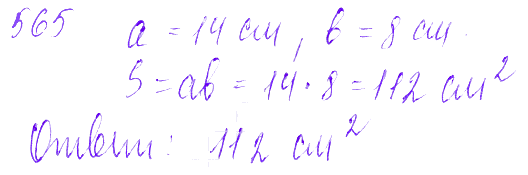 565 a = 14 см, b = 8 см.
S = ab = 14 · 8 = 112 см²
Ответ: 112 см²